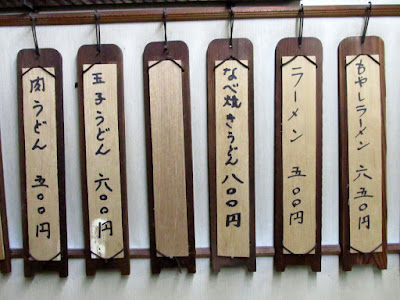 もやしラーメン 六五〇円
ラーメン 五〇〇円
なべ焼きうどん 八〇〇円
玉子うどん 六〇〇円
肉うどん 五〇〇円